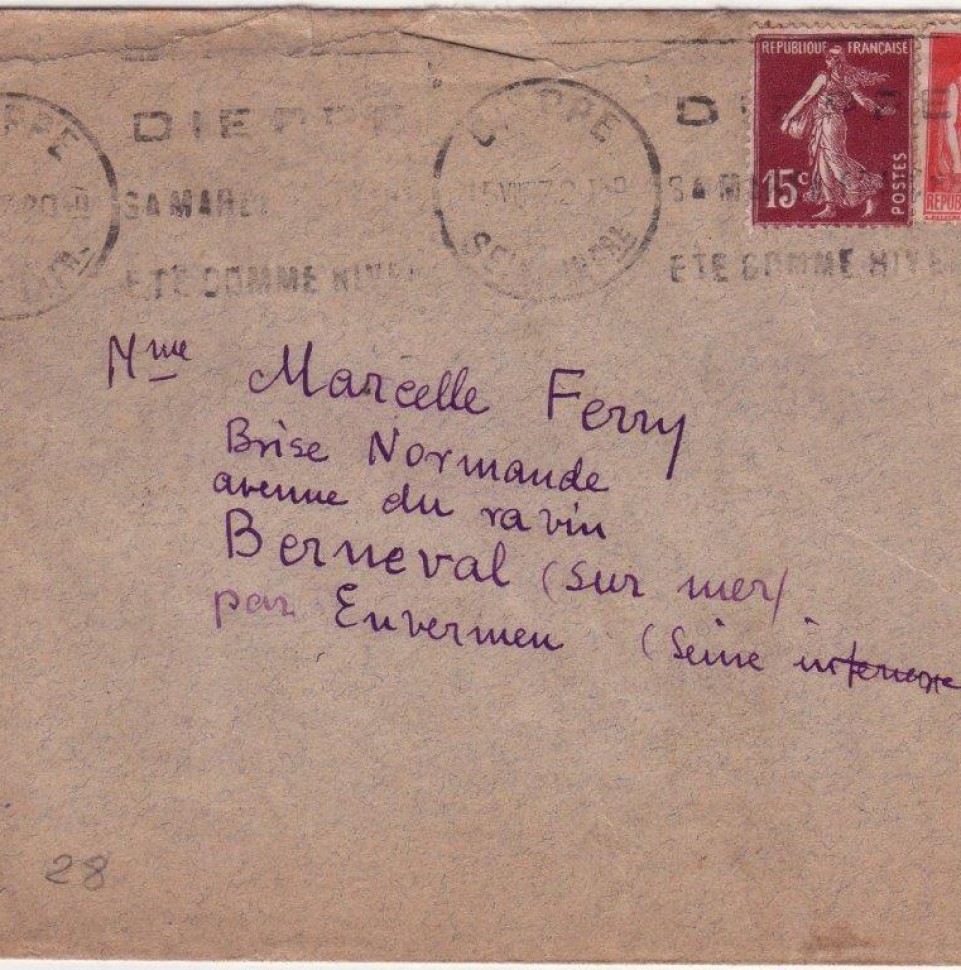 DIEPPE
DIEPPE
SA MAREE
SA M
ETE COMME HIVER
ETE COMME HIVER
REPUBLIQUE FRANÇAISE
15c
POSTES
REPUB
Mme Marcelle Ferry
Brise Normande
avenue du ravin
Berneval (sur mer)
par Envermeu (Seine inferieure
28